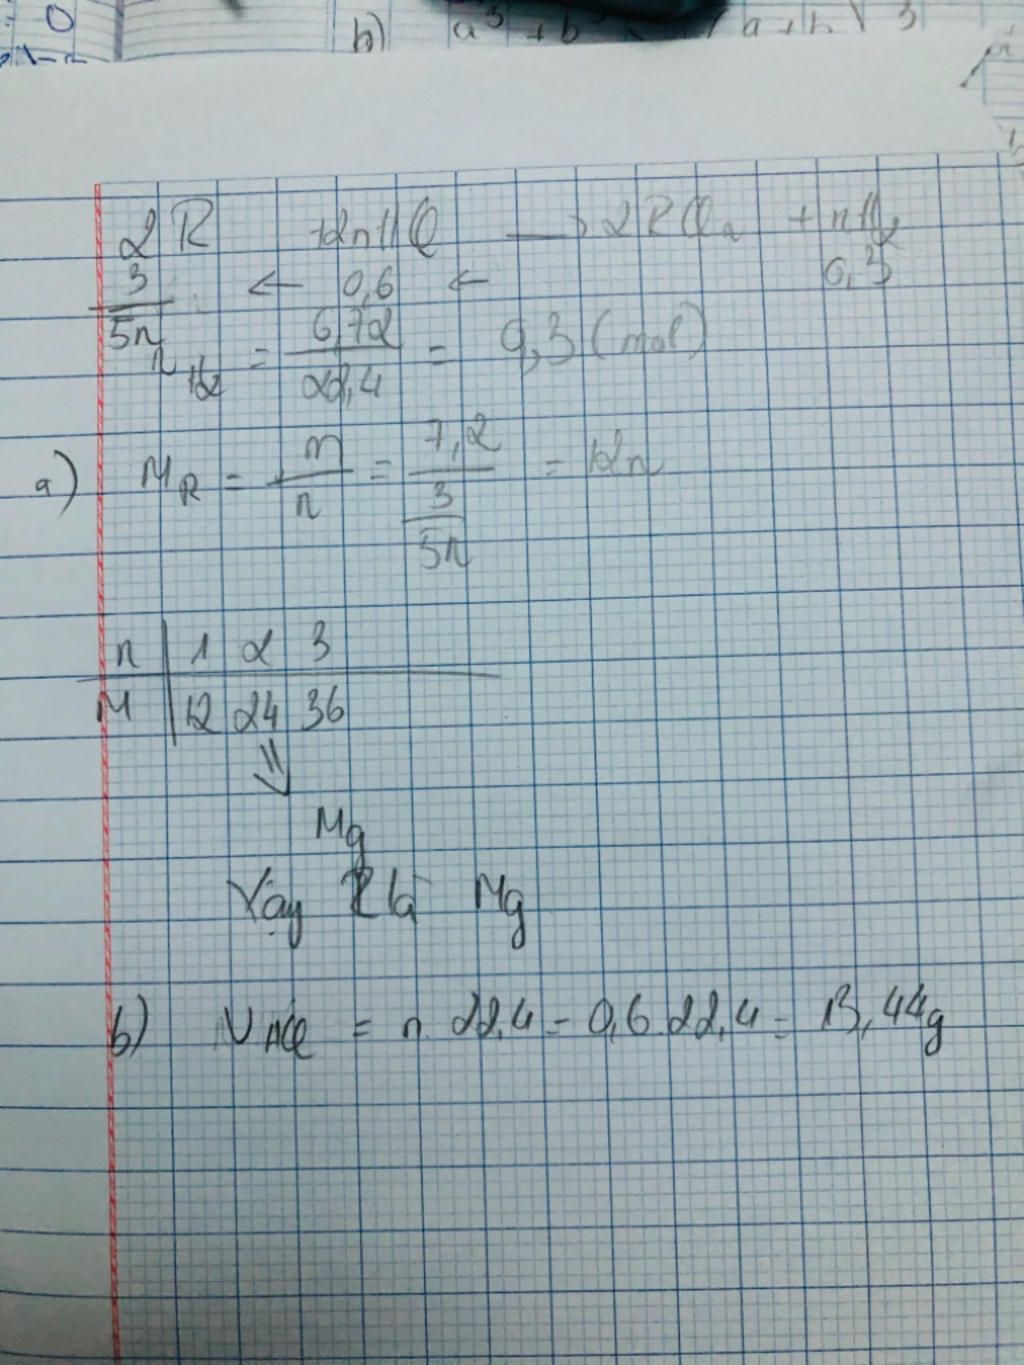 b) a³ + b
a + b
3
2R + 2nHCl → 2RCln + nH2
3/5n ← 0,6 ← 0,3
nH2 = 6,72/22,4 = 0,3 (mol)
a) MR = m/n = 7,2/(3/5n) = 12n
n | 1 2 3
M | 12 24 36
⇓
Mg
Vậy R là Mg
b) VHCl = n. 22,4 = 0,6.22,4 = 13,44g